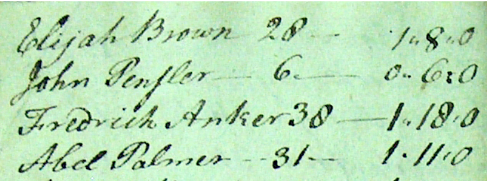 Elijah Brown 28 — 1"8"0
John Pensler — 6 — 0"6"0
Fredrich Anker 38 — 1"18"0
Abel Palmer — 31 — 1"11"0